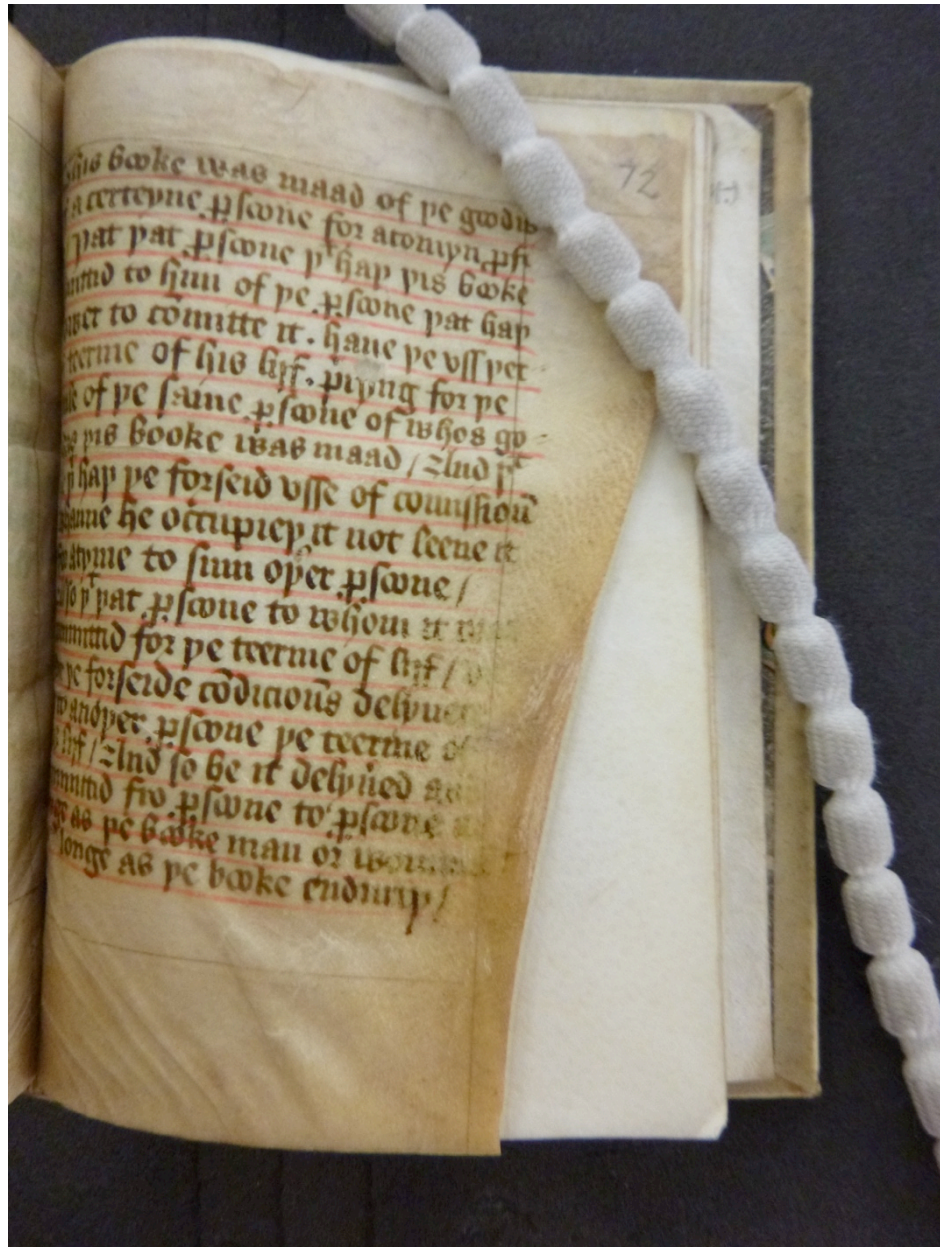 72
his booke was maad of þe goodis
a certeyne ꝑsoone for a comyn ꝓfi
þat þat ꝑsoone þᵗ haþ þis booke
mittid to him of þe ꝑsoone þat haþ
wer to cōmitte it . haue þe vss þer
teerme of his lijf . praiyng for þe
le of þe same ꝑsoone of whos go
þis booke was maad / And þᵗ
þᵗ haþ þe forseid vsse of cōmissioū
hanne he occupieþ it not leene it
atyme to sum oþer ꝑsoone /
lso þᵗ þat ꝑsoone to whom it
mmittid for þe teerme of lijf /
þe forseide cōdiciouns delyuere
to anoþer ꝑsoone þe teerme of
lijf / And so be it delyūed
mmittid fro ꝑsoone to ꝑsoone
as þe booke man or womman
longe as þe booke enduriþ /